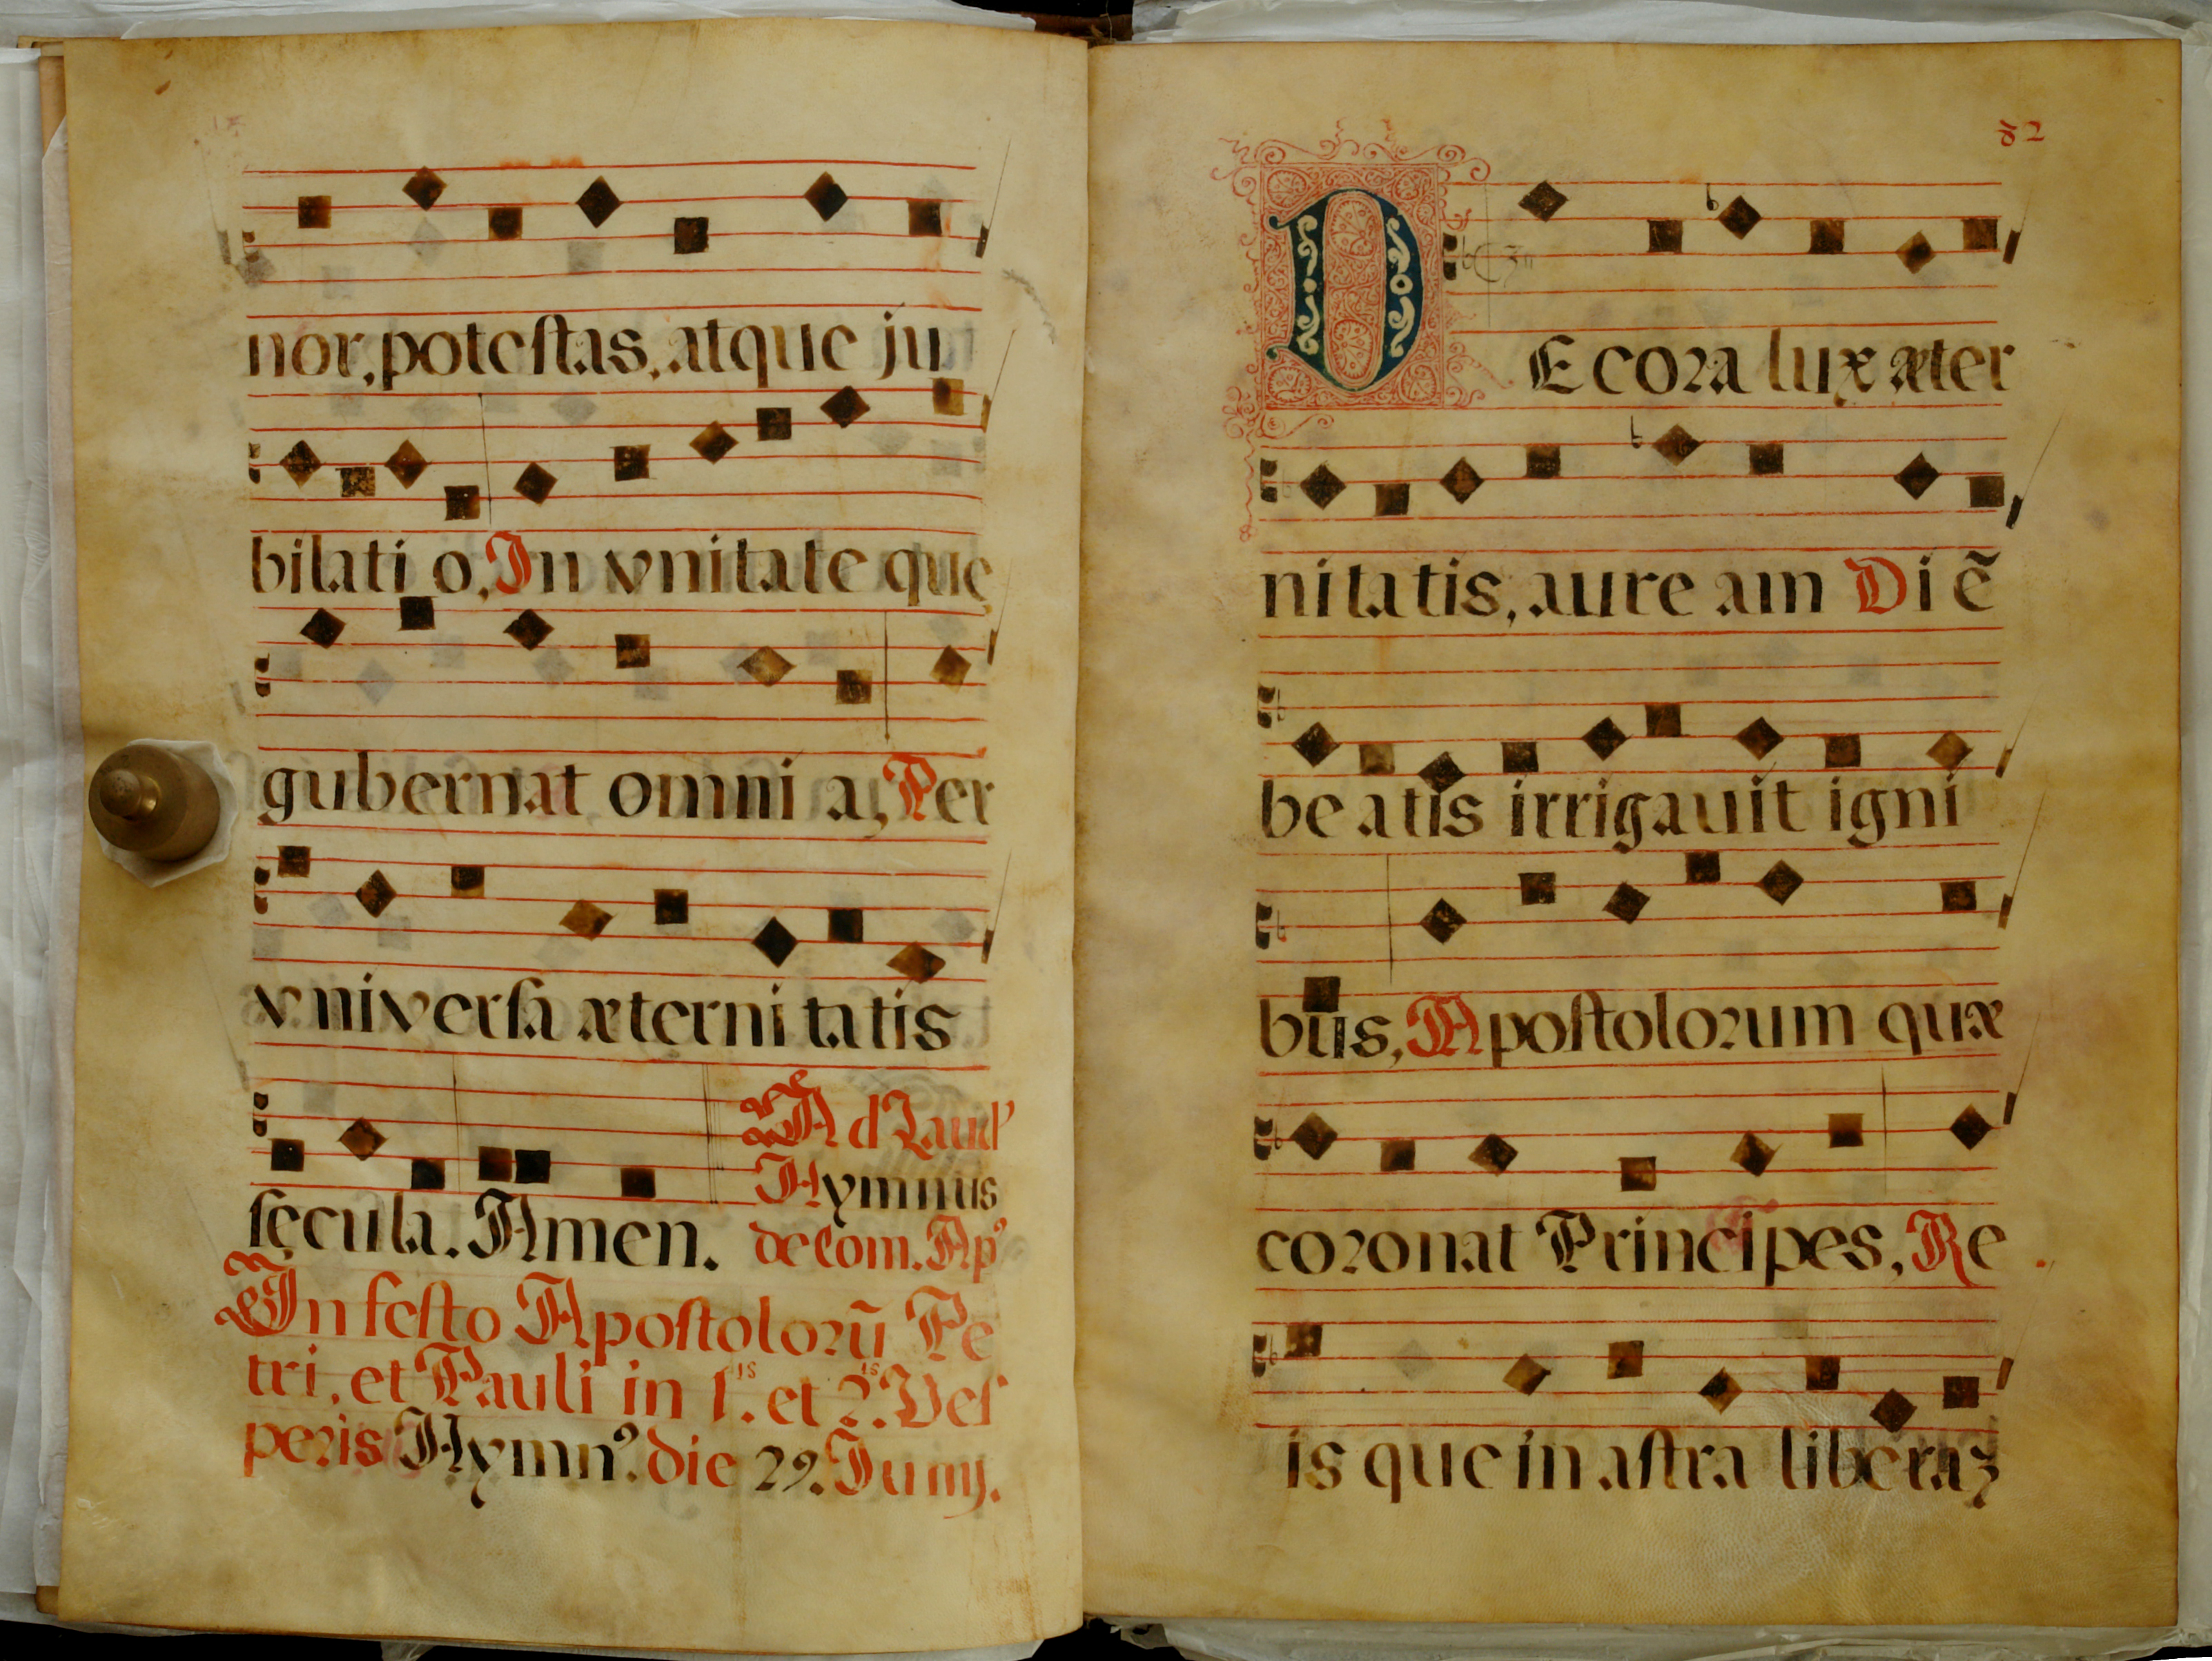 nor, poteſtas, atque ju
bilati o, In vnitate que
gubernat omni a, Per
vniverſa æterni tatis
ſęcula. Amen.
Ad Laud'
Hymnus
de Com. Ap'
In feſto Apoſtoloꝛũ Pe
tri, et Pauli in 1.is et 2.is Veſ
peꝛis Hymn9. die 29. Iunij.
82
DEcoꝛa lux æter
ni ta tis, aure am Di ẽ
be a tis irrigauit igni
bus, Apoſtoloꝛum quæ
coꝛonat Principes, Re
is que in aſtra liberaꝫ